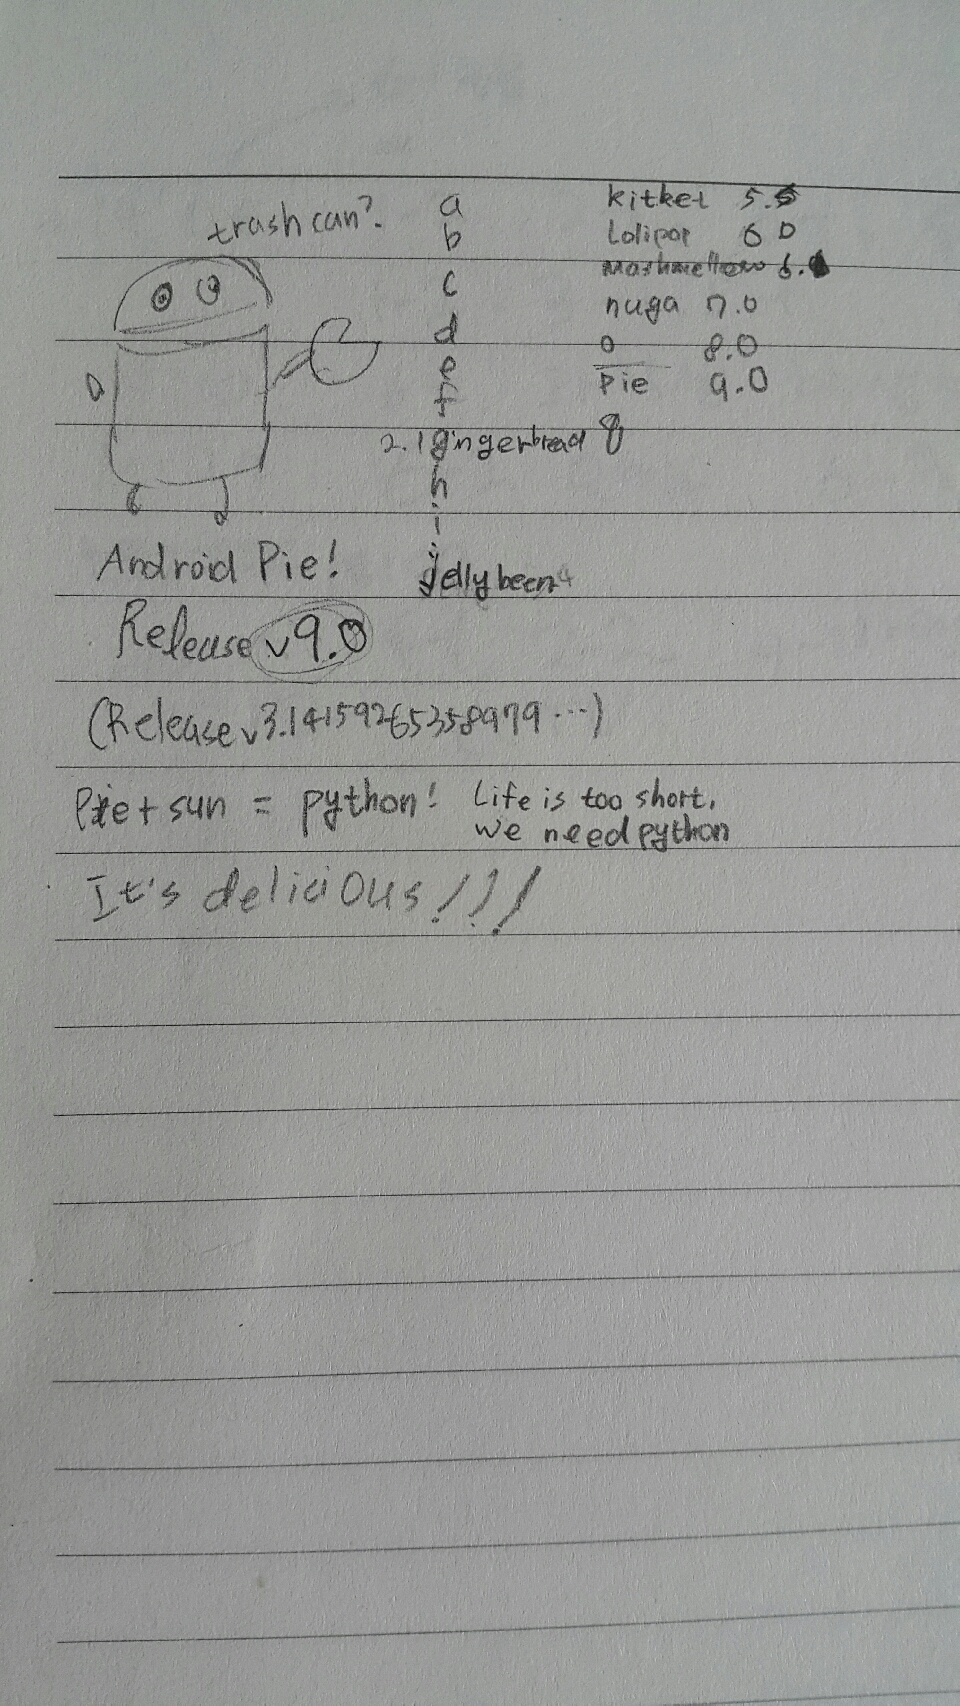 trash can?
a
b
c
d
e
f
2.1 gingerbread 8
h
i
jellybeen 4
kitket 5.5
Lolipop 6 0
mashmellow 6.
nuga 7.0
o 8.0
pie 9.0
Android Pie!
Release v9.0
(Release v3.14159265358979 ...)
Pie + sun = python!
Life is too short,
we need python
It's delicious!!!